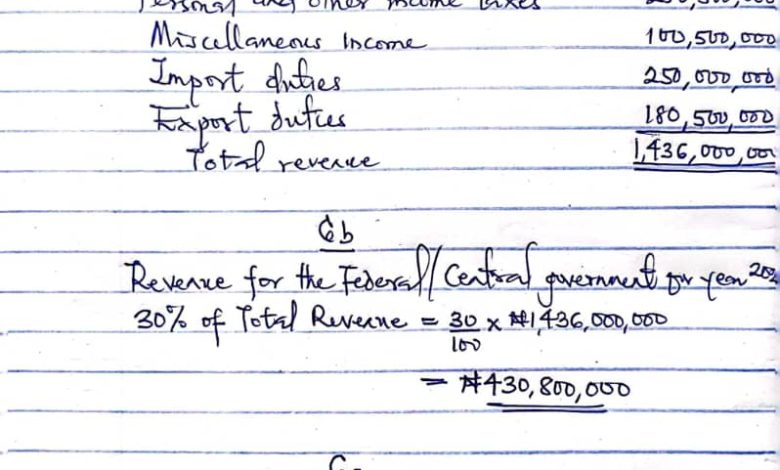 Personal and other income taxes
Miscellaneous Income 100,500,000
Import duties 250,000,000
Export duties 180,500,000
Total revenue 1,436,000,000
6b
Revenue for the Federal/Central government for year
30% of Total Revenue = 30/100 x ₦1,436,000,000
= ₦430,800,000